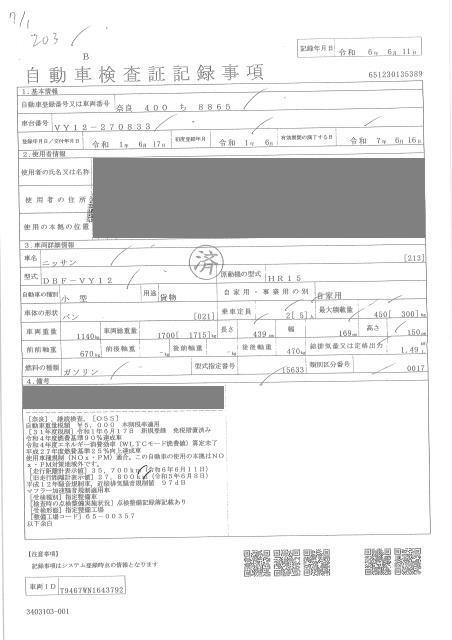 7/1
203
B
記録年月日 令和 6年 6月 11日
自動車検査証記録事項
651230135389
1.基本情報
自動車登録番号又は車両番号 奈良 400 ち 8865
車台番号 VY12-270833
登録年月日/交付年月日 令和 1年 6月 17日 初度登録年月 令和 1年 6月 有効期間の満了する日 令和 7年 6月 16日
2.使用者情報
使用者の氏名又は名称
使用者の住所
使用の本拠の位置
3.車両詳細情報
済
車名 ニッサン [213]
型式 DBF-VY12 原動機の型式 HR15
自動車の種別 小型 用途 貨物 自家用・事業用の別 自家用
車体の形状 バン [021] 乗車定員 2[ 5]人 最大積載量 450[ 300]kg
車両重量 1140kg 車両総重量 1700[ 1715]kg 長さ 439cm 幅 169cm 高さ 150cm
前前軸重 670kg 前後軸重 -kg 後前軸重 -kg 後後軸重 470kg 総排気量又は定格出力 1.49L
燃料の種類 ガソリン 型式指定番号 15633 類別区分番号 0017
4.備考
[奈良], 継続検査, [OSS]
自動車重量税額 ¥5,000 本則税率適用
令和4年度燃費基準90%達成車
令和4年度エネルギー消費効率(WLTCモード燃費値)算定未了
平成27年度燃費基準25%向上達成車
使用車種規制(NOx・PM)適合。この自動車の使用の本拠はNO
x・PM対策地域外です。
[走行距離計表示値]35,700km(令和6年6月11日)
[旧走行距離計表示値]27,800km(令和5年6月8日)
平成12年騒音規制車、近接排気騒音規制値 97dB
マフラー加速騒音規制適用車
[受検種別]指定整備車
[検査時の点検整備実施状況]点検整備記録簿記載あり
[受検形態]指定整備工場
[整備工場コード]65-00357
以下余白
【注意事項】
記録事項はシステム登録時点の情報となります
車両ID T9467WN1643792
3403103-001